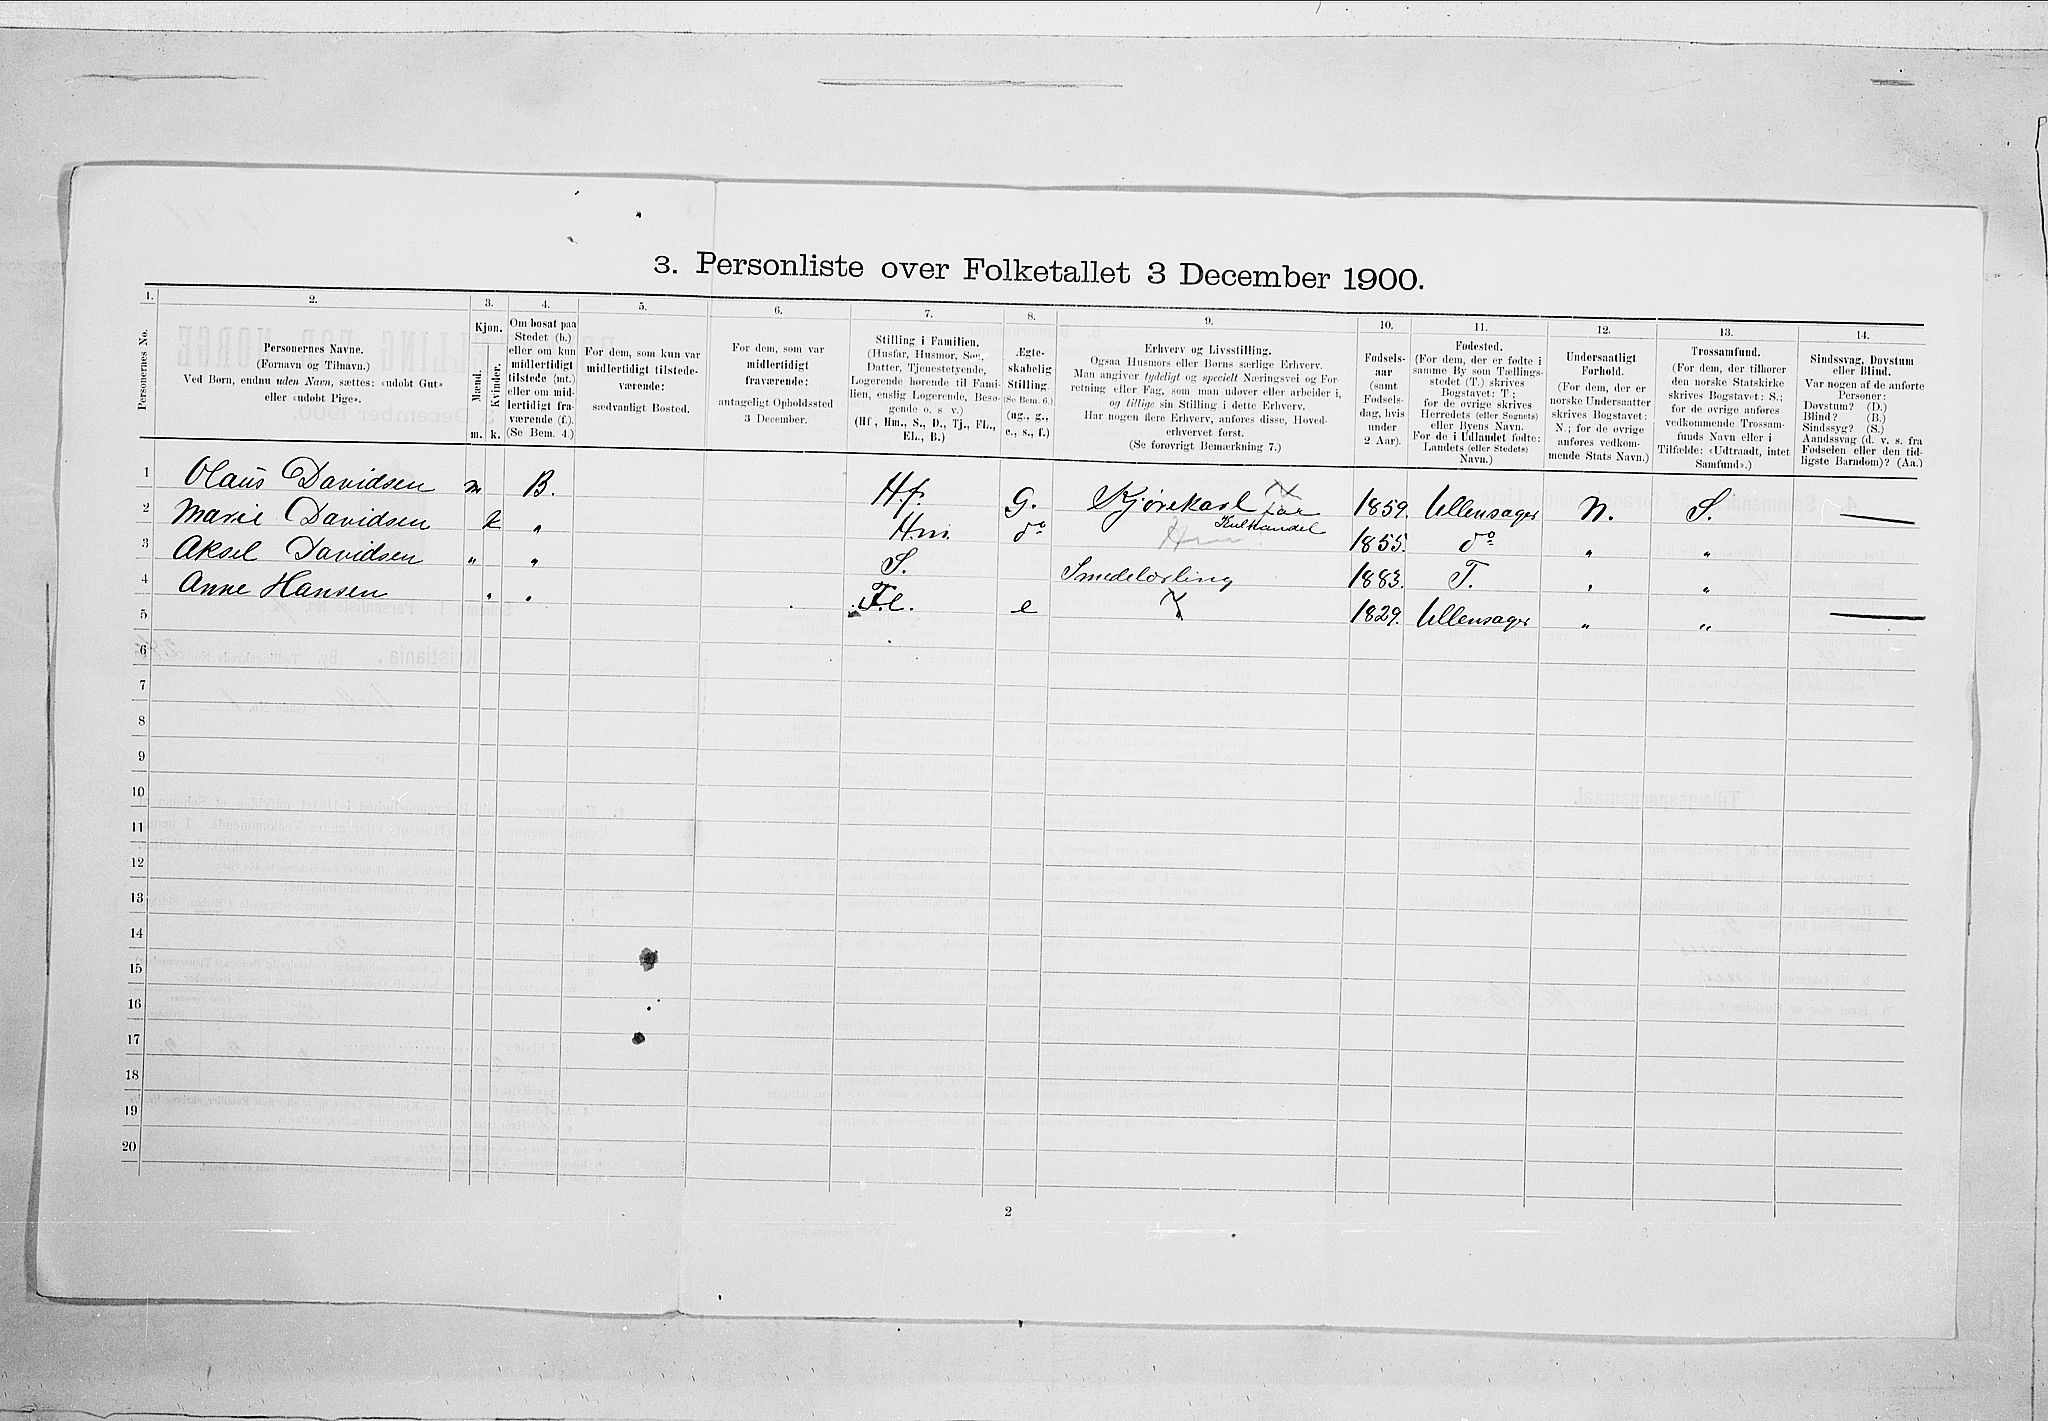 3. Personliste over Folketallet 3 December 1900.
1. 2. 3. 4. 5. 6. 7. 8. 9. 10. 11. 12. 13. 14.
Personernes No.
Personernes Navne.
(Fornavn og Tilnavn.)
Ved Børn, endnu uden Navn, sættes: «udøbt Gut»
eller «udøbt Pige».
Kjøn.
Mænd.
Kvinder.
m. k.
Om bosat paa
Stedet (b.)
eller om kun
midlertidigt
tilstede (mt.)
eller om mid-
lertidigt fra-
værende (f.).
(Se Bem. 4.)
For dem, som kun var
midlertidigt tilstede-
værende:
sædvanligt Bosted.
For dem, som var
midlertidigt
fraværende:
antageligt Opholdssted
3 December.
Stilling i Familien.
(Husfar, Husmor, Søn,
Datter, Tjenestetyende,
Logerende hørende til Fami-
lien, enslig Logerende, Besø-
gende o. s. v.)
(Hf., Hm., S., D., Tj., FL.,
EL., B.)
Ægte-
skabelig
Stilling.
(Se Bem. 6.)
(ug., g.,
e., s., f.)
Erhverv og Livsstilling.
Ogsaa Husmors eller Børns særlige Erhverv.
Man angiver tydeligt og specielt Næringsvei og For-
retning eller Fag, som man udøver eller arbeider i,
og tillige sin Stilling i dette Erhverv.
Har nogen flere Erhverv, anføres disse, Hoved-
erhvervet først.
(Se forøvrigt Bemærkning 7.)
Fødsels-
aar
(samt
Fødsels-
dag, hvis
under
2 Aar).
Fødested.
(For dem, der er fødte i
samme By som Tællings-
stedet (T.) skrives
Bogstavet: T;
for de øvrige skrives
Herredets (eller Sognets)
eller Byens Navn.
For de i Udlandet fødte:
Landets (eller Stedets)
Navn.)
Undersaatligt
Forhold.
(For dem, der er
norske Undersaatter
skrives Bogstavet:
N.; for de øvrige
anføres vedkom-
mende Stats Navn.)
Trossamfund.
(For dem, der tilhører
den norske Statskirke
skrives Bogstavet: S.;
for de øvrige anføres
vedkommende Trossam-
funds Navn eller i
Tilfælde: «Udtraadt, intet
Samfund».)
Sindssvag, Døvstum
eller Blind.
Var nogen af de anførte
Personer:
Døvstum? (D.)
Blind? (B.)
Sindssyg? (S.)
Aandssvag (d. v. s. fra
Fødselen eller den tid-
ligste Barndom)? (Aa.)
1 Olaus Davidsen m B. Hf. G. Kjørekarl 1859. Ullensager N. S.
Kulhandel
2 Marie Davidsen k " Hm. do 1855. do " "
3 Aksel Davidsen " " S. Smedelærling 1883. T. " "
4 Anne Hansen " " F.L. e 1829. Ullensager " "
5
6
7
8
9
10
11
12
13
14
15
16
17
18
19
20
2